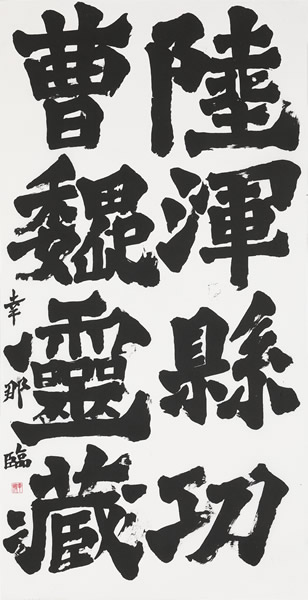 陸渾縣功
曹魏靈藏
幸那臨